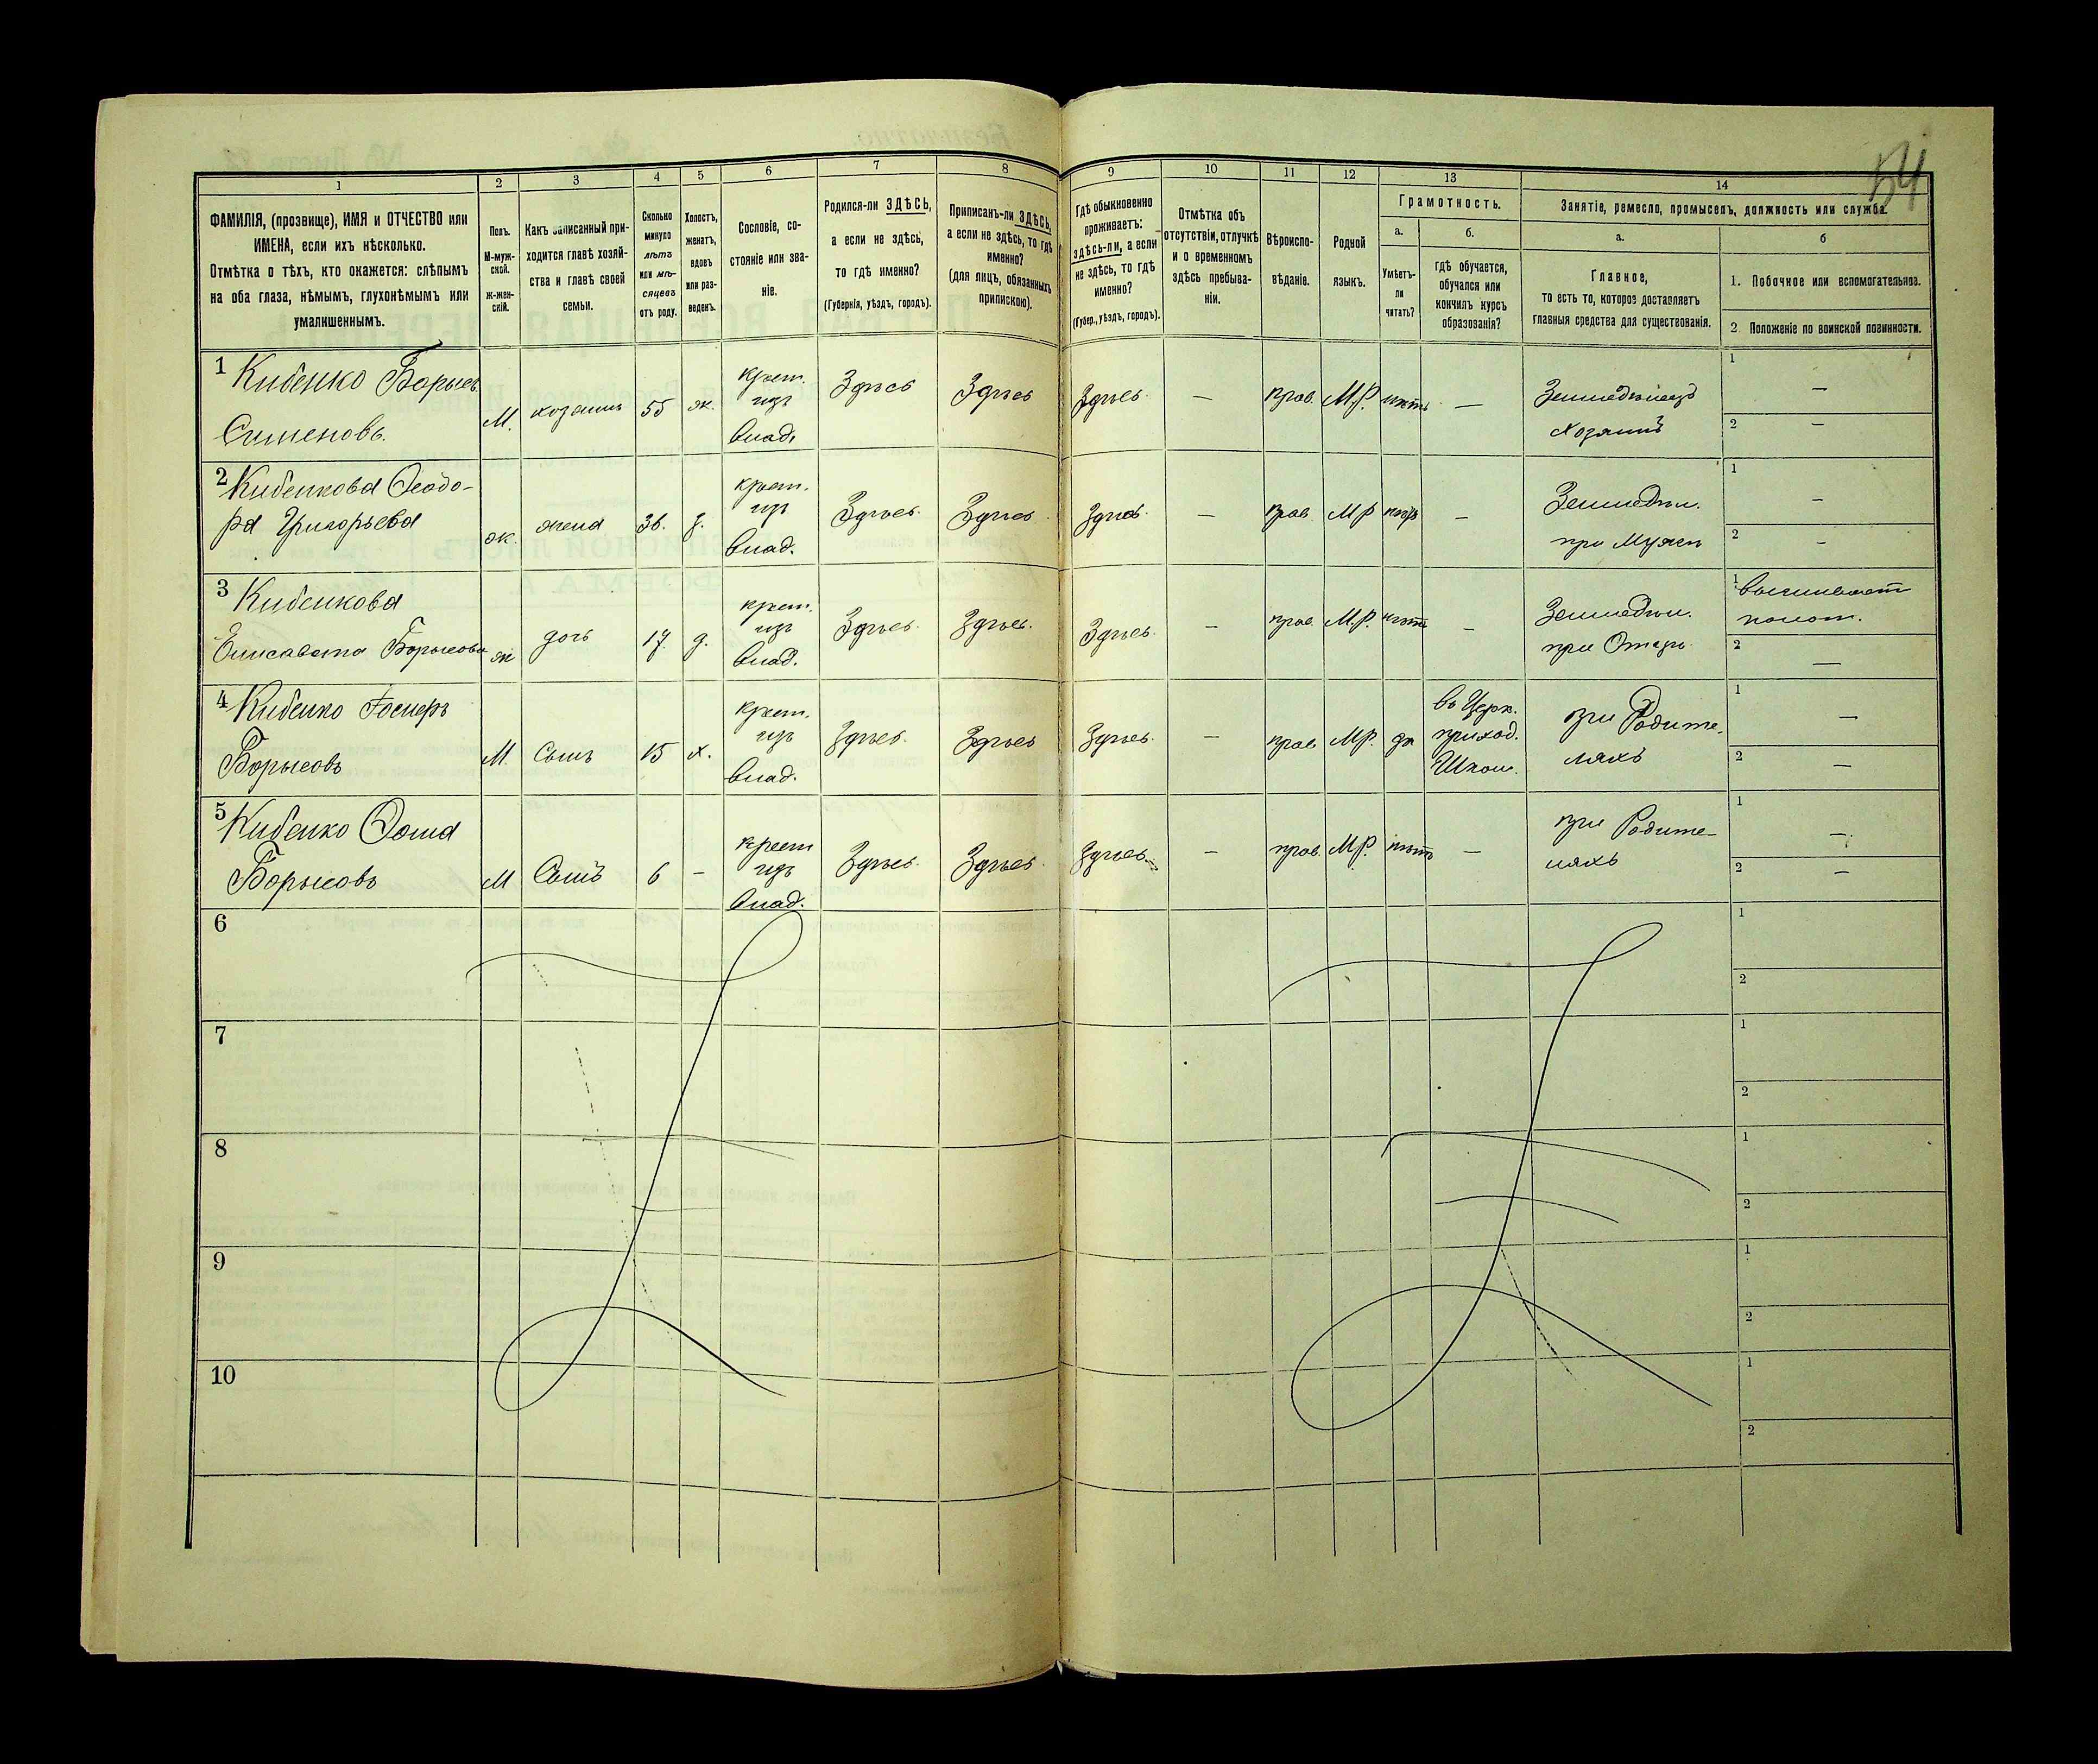 54
1 2 3 4 5 6 7 8 9 10 11 12 13 14
ФАМИЛІЯ, (прозвище), ИМЯ и ОТЧЕСТВО или
ИМЕНА, если ихъ нѣсколько.
Отмѣтка о тѣхъ, кто окажется: слѣпымъ
на оба глаза, нѣмымъ, глухонѣмымъ или
умалишеннымъ.
Полъ.
М-муж-
ской.
ж-жен-
скій.
Какъ записанный при-
ходится главѣ хозяй-
ства и главѣ своей
семьи.
Сколько
минуло
лѣтъ
или мѣ-
сяцевъ
отъ роду.
Холостъ,
женатъ,
вдовъ
или раз-
веденъ.
Сословіе, со-
стояніе или зва-
ніе.
Родился-ли ЗДѢСЬ,
а если не здѣсь,
то гдѣ именно?
(Губернія, уѣздъ, городъ).
Приписанъ-ли ЗДѢСЬ,
а если не здѣсь, то гдѣ
именно?
(для лицъ, обязанныхъ
припискою).
Гдѣ обыкновенно
проживаетъ:
здѣсь-ли, а если
не здѣсь, то гдѣ
именно?
(Губер., уѣздъ, городъ).
Отмѣтка объ
отсутствіи, отлучкѣ
и о временномъ
здѣсь пребыва-
ніи.
Вѣроиспо-
вѣданіе.
Родной
языкъ.
Грамотность.
а.
Умѣетъ-
ли
читать?
б.
гдѣ обучается,
обучался или
кончилъ курсъ
образованія?
Занятіе, ремесло, промыселъ, должность или служба.
а.
Главное,
то есть то, которое доставляетъ
главныя средства для существованія.
б
1. Побочное или вспомогательное.
2 Положеніе по воинской повинности.
1 Кибенко Борысъ
Сименовъ.
М. хозяинъ 55 ж.
крест.
изъ
влад.
Здѣсь Здѣсь Здѣсь — прав. М.Р. нѣтъ —
Земледѣлецъ
Хозяинъ
1 —
2 —
2 Кибенкова Ѳеодо-
ра Григорьева
ж. жена 36. з.
крест.
изъ
влад.
Здѣсь Здѣсь Здѣсь — прав М.Р нѣтъ —
Земледѣл.
при Мужѣ
1 —
2 —
3 Кибенкова
Елисавета Борысова
ж дочь 17. д.
крест.
изъ
влад.
Здѣсь Здѣсь. Здѣсь. — прав. М.Р. нѣтъ —
Земледѣл.
при Отцѣ
1
полот.
2 —
4 Кибенко
Борысовъ
М. Сынъ 15 х.
крест.
изъ
влад.
Здѣсь. Здѣсь Здѣсь. — прав. М.Р. да
въ Церк.
приход.
Школ.
при Родите-
ляхъ
1 —
2 —
5 Кибенко Ѳома
Борысовъ
М Сынъ 6 —
крест
изъ
влад.
Здѣсь. Здѣсь Здѣсь — прав. М.Р. нѣтъ —
при Родите-
ляхъ
1 —
2 —
6
1
2
7
1
2
8
1
2
9
1
2
10
1
2